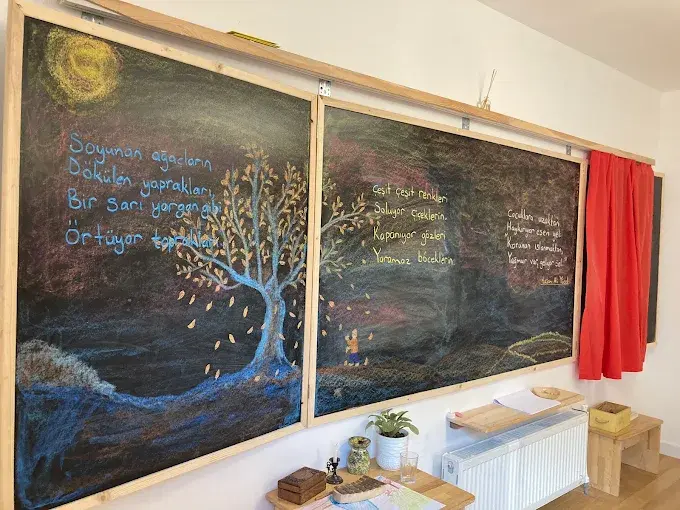 Soyunan ağaçların
Dökülen yaprakları
Bir sarı yorgan gibi
Örtüyor toprakları
Çeşit çeşit renkleri
Soluyor çiçeklerin.
Kapanıyor gözleri
Yaramaz böceklerin
Çocuklara uzaktan
Haykırıyor esen yel:
Korunun ıslanmaktan,
Yağmur var, geliyor sel.